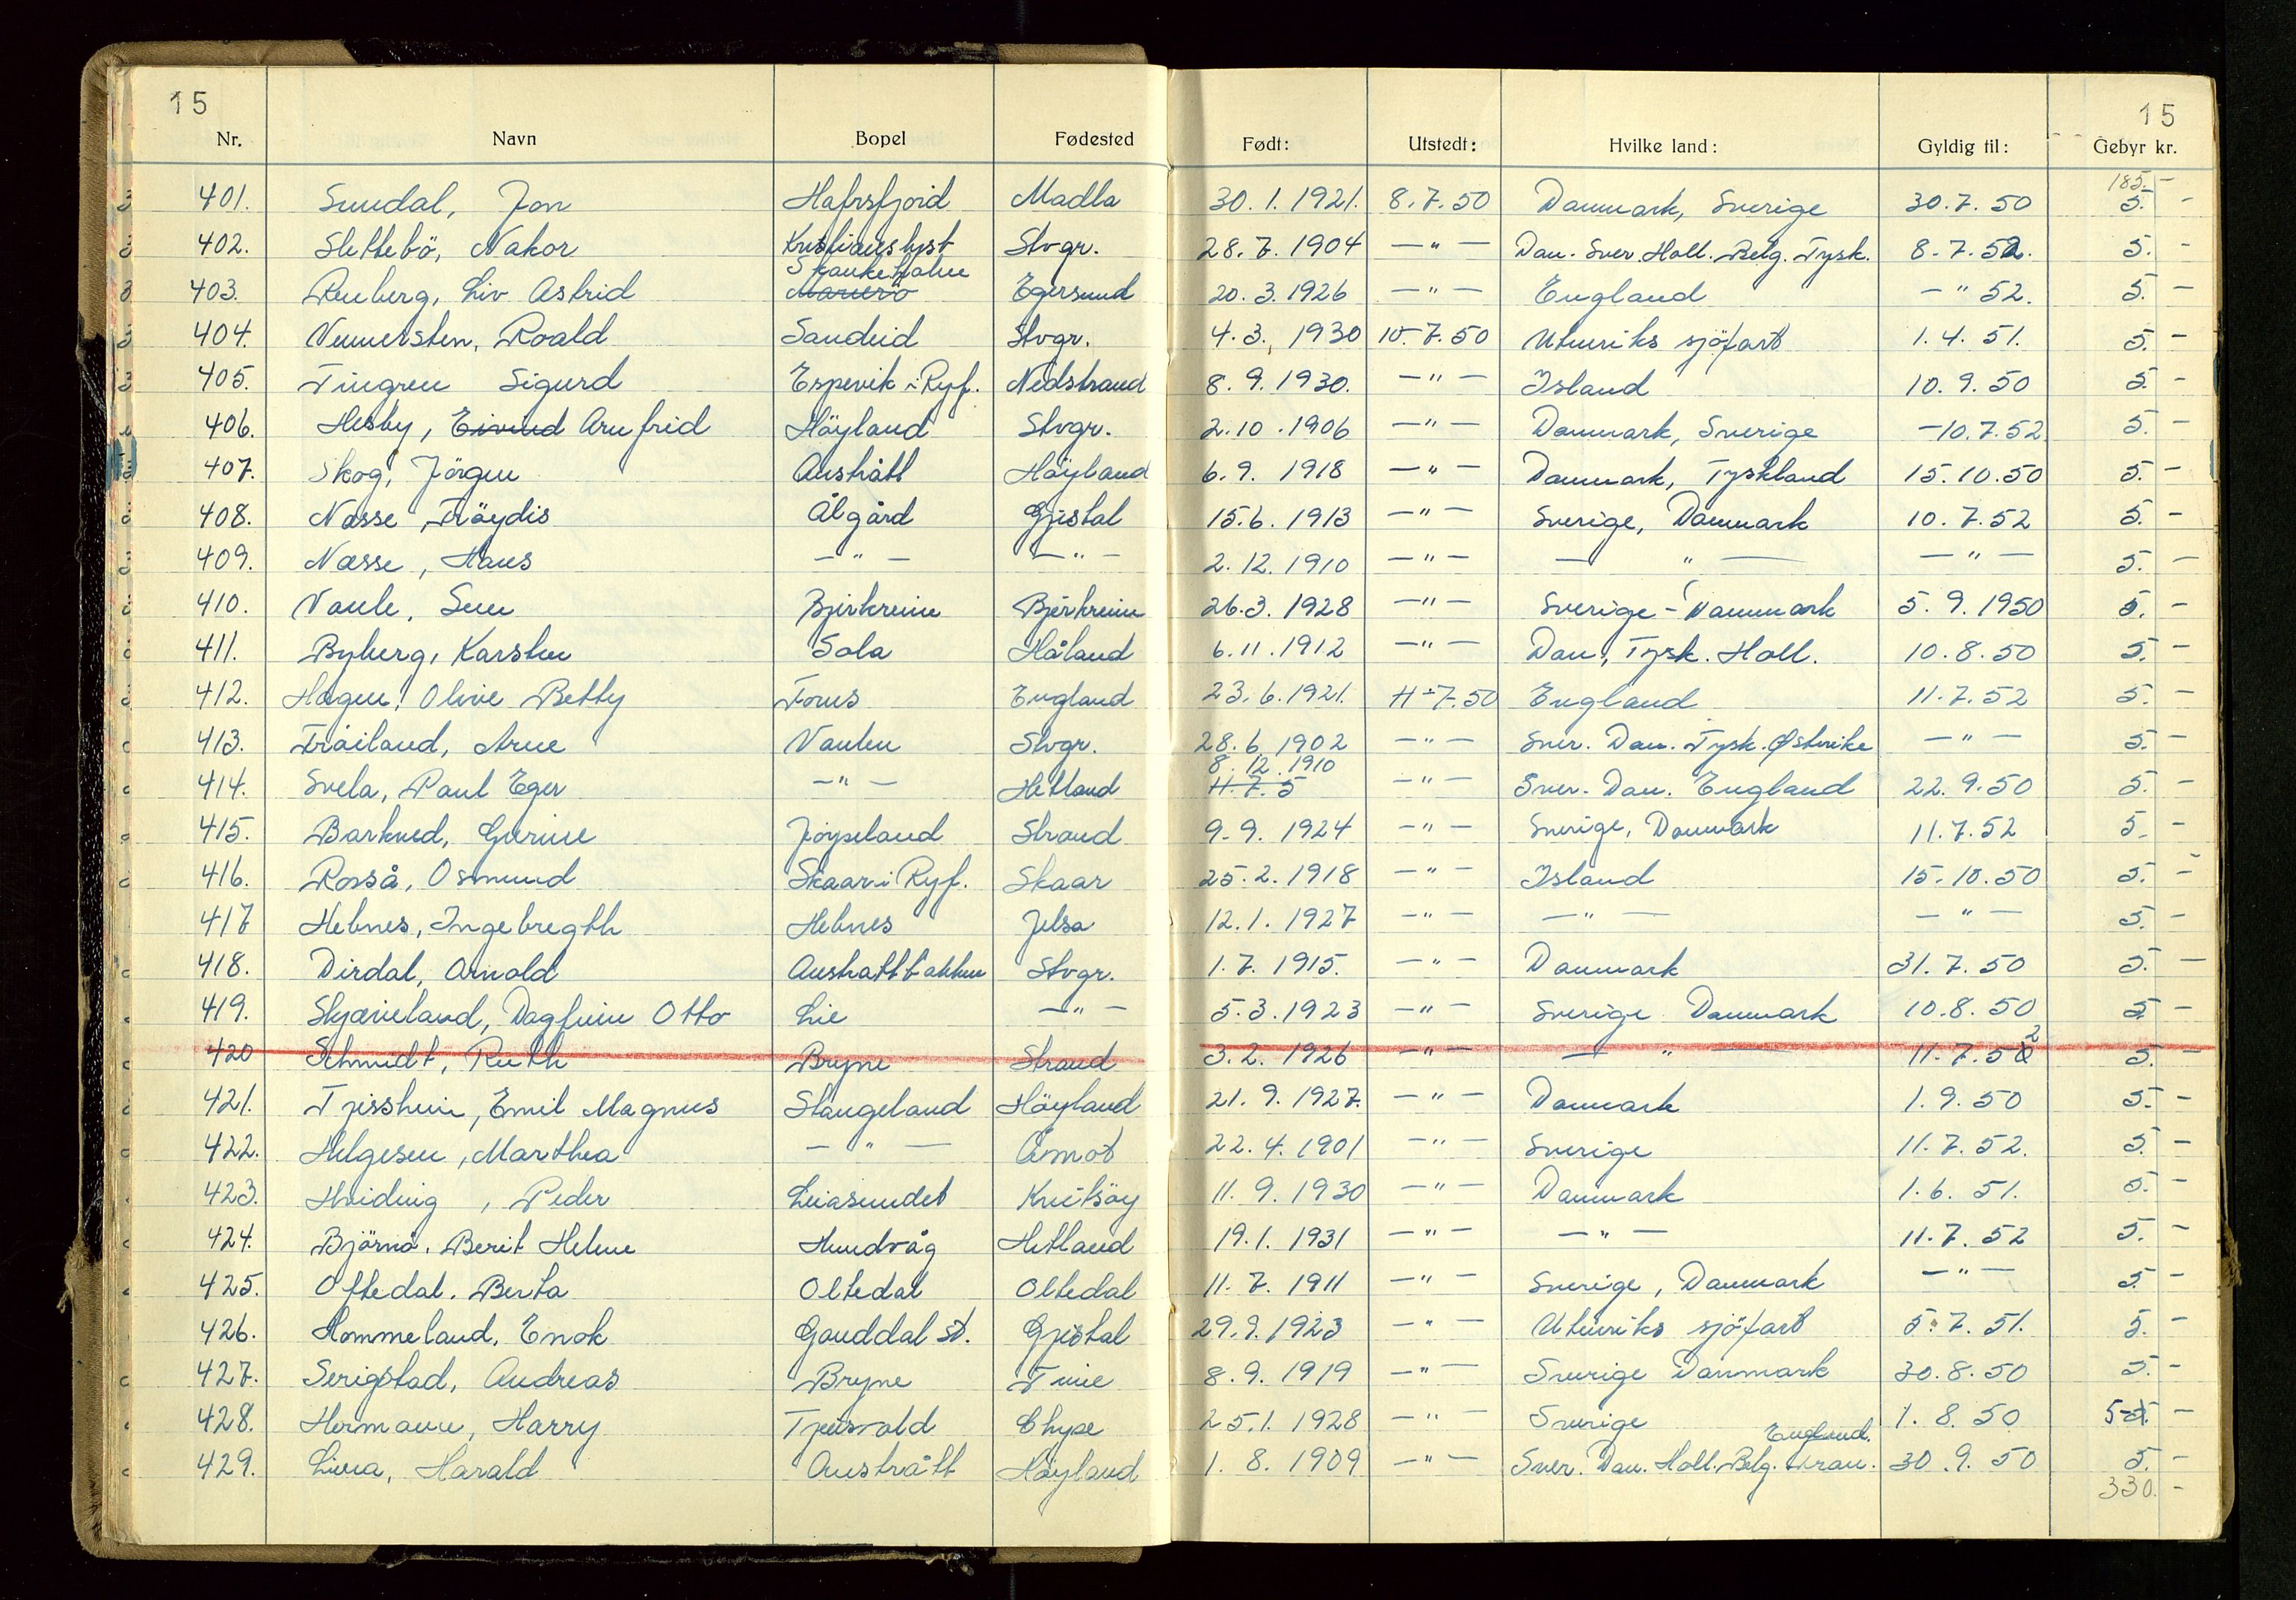 15 15
Nr. Navn Bopel Fødested Født: Utstedt: Hvilke land: Gyldig til: Gebyr kr.
185.-
401. Sundal, Jon Hafrsfjord Madla 30.1.1921. 8.7.50 Danmark, Sverige 30.7.50 5. -
402. Slettebö, Nakor Kristianslyst Stvgr. 28.7.1904 -"- Dan. Sver. Holl. Belg. Tysk. 8.7.52. 5. -
Skankeholm
403. Renberg, Liv Astrid Marierö Egersund 20.3.1926 -"- England -" 52. 5. -
404. Vennersten, Roald Sandeid Stvgr. 4.3.1930 10.7.50 Utenriks sjöfart 1.4.51. 5. -
405. Tingren Sigurd Espevik i Ryf. Nedstrand 8.9.1930. -"- Island 10.9.50 5. -
406. Hesby, Eivind Arnfrid Höyland Stvgr. 2.10.1906 -"- Danmark, Sverige -10.7.52 5. -
407. Skog, Jörgen Austrått Höyland 6.9.1918 -"- Danmark, Tyskland 15.10.50 5. -
408. Næsse, Fröydis Ålgård Gjestal 15.6.1913 -"- Sverige, Danmark 10.7.52 5. -
409. Næsse, Hans -"- -"- 2.12.1910 -"- -"- -"- 5. -
410. Vaule, Bjerkreim Bjerkreim 26.3.1928 -"- Sverige - Danmark 5.9.1950 5. -
411. Byberg, Karsten Sola Håland 6.11.1912 -"- Dan, Tysk. Holl. 10.8.50 5. -
412. Hagen, Olive Betty Forus England 23.6.1921. 11-7.50 England 11.7.52 5. -
413. Tråiland, Arne Vaulen Stvgr. 28.6.1902 -"- Sver. Dan. Tysk. Østerike -"- 5. -
8.12.1910
414. Svela, Paul Eger -"- Hetland 11.7.5 -"- Sver. Dan. England 22.9.50 5. -
415. Barkved, Gurine Jörpeland Strand 9.9.1924 -"- Sverige, Danmark 11.7.52 5. -
416. Rosså, Osmund Skaar i Ryf. Skaar 25.2.1918 -"- Island 15.10.50 5. -
417 Hebnes, Ingebregth Hebnes Jelsa 12.1.1927 -"- -"- -"- 5. -
418. Dirdal, Arnold Austrattbakken Stvgr. 1.7.1915. -"- Danmark 31.7.50 5. -
419. Skjæveland, Dagfinn Otto Lie -"- 5.3.1923 -"- Sverige Danmark 10.8.50 5 -
420 Schmidt, Ruth Bryne Strand 3.2.1926 -"- -"- 11.7.52 5. -
421. Tjessheim, Emil Magnus Stangeland Höyland 21.9.1927. -"- Danmark 1.9.50 5. -
422. Helgesen, Marthea -"- Åmot 22.4.1901 -"- Sverige 11.7.52. 5. -
423. Hviding, Peder Leiasundet Kvitsöy 11.9.1930 -"- Danmark 1.6.51. 5. -
424. Björnö, Berit Helene Hundvåg Hetland 19.1.1931 -"- -"- 11.7.52 5. -
425. Oftedal. Berta Oltedal Oltedal 11.7.1911 -"- Sverige, Danmark -"- 5. -
426. Hommeland, Enok Ganddal st. Gjestal 29.9.1923 -"- Utenriks sjöfart 5.7.51. 5. -
427. Serigstad, Andreas Bryne Time 8.9.1919 -"- Sverige Danmark 30.8.50 5. -
428. Hermann, Harry Tjensvold Chype 25.1.1928 -"- Sverige 1.8.50 5 -
England.
429. Lima, Harald Austrått Höyland 1.8.1909 -"- Sver. Dan. Holl. Belg. Fran. 30.9.50 5. -
330. -